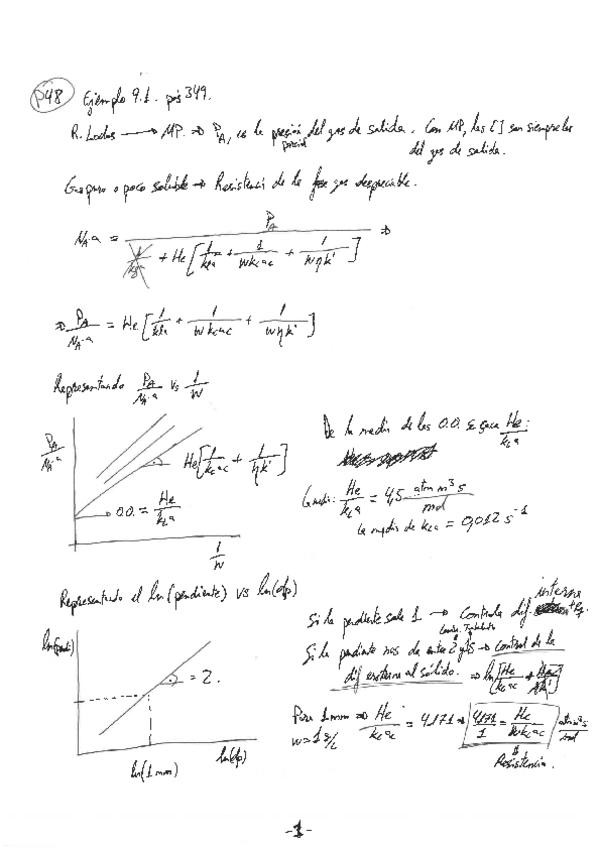 P48 Ejemplo 9.1. pág 349.
R. Lodos → MP. ⇒ P_A, es la presión parcial del gas de salida. Con MP, las [ ] son siempre las
del gas de salida.
Gas puro o poco soluble → Resistencia de la fase gas despreciable.
N_A·a = P_A / ( + He [ 1/k_L a + 1/(w k_c a_c) + 1/(w η k') ] ) ⇒
⇒ P_A/(N_A·a) = He [ 1/k_L a + 1/(w k_c a_c) + 1/(w η k') ]
Representando P_A/(N_A·a) vs 1/w
P_A/(N_A·a)
He [ 1/(k_c a_c) + 1/(η k') ]
O.O. = He/(k_L a)
1/w
De la media de las O.O. se saca He/(k_L a):
La media: He/(k_L a) = 4,5 atm m³ s / mol
La media de k_L a = 0,012 s⁻¹
Representando el ln(pendiente) vs ln(dp)
ln(pendi)
= 2.
ln(1 mm)
ln(dp)
Si la pendiente sale 1 → Controla dif. interna
Si la pendiente nos da entre 2 y 1,5 → control de la
dif externa al sólido. ⇒ ln[ He/(k_c a_c) + ]
Para 1 mm ⇒ He/(k_c a_c) = 4,171 ⇒ 4,171/1 = He/(w k_c a_c) atm m³ s / mol
w = 1 g/L
Resistencia.
-1-